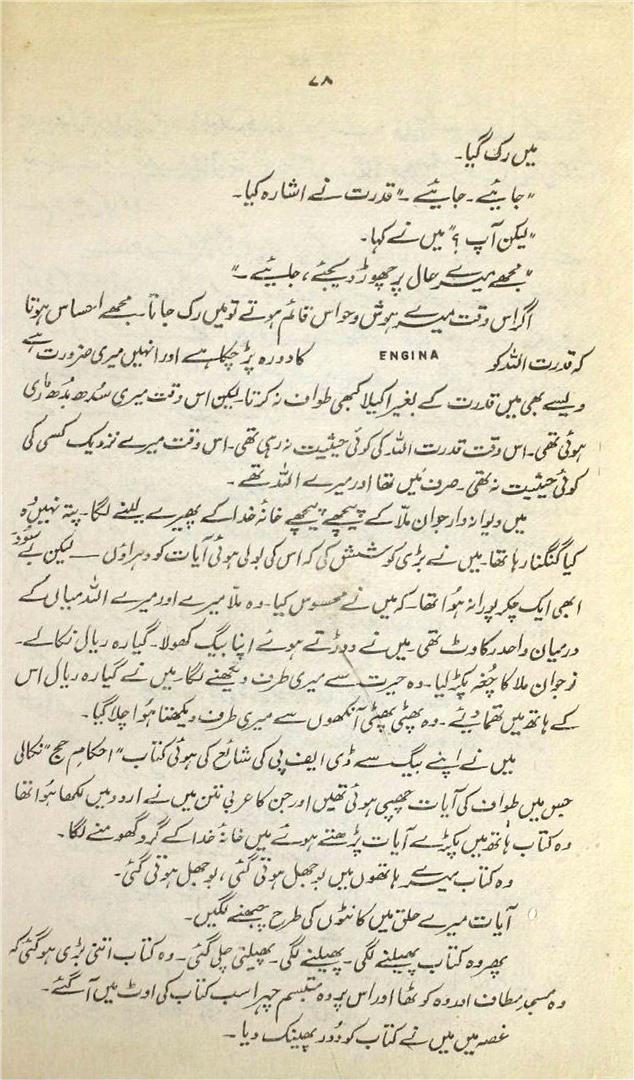 ۷۸
میں رک گیا۔
"جائیے۔ جائیے۔" قدرت نے اشارہ کیا۔
"لیکن آپ؟" میں نے کہا۔
"مجھے میرے حال پر چھوڑ دیجئے، جائیے۔"
اگر اس وقت میرے ہوش و حواس قائم ہوتے تو میں رک جاتا۔ مجھے احساس ہوتا
کہ قدرت اللہ کو ENGINA کا دورہ پڑ چکا ہے اور انہیں میری ضرورت ہے
ویسے بھی میں قدرت کے بغیر اکیلا کبھی طواف نہ کرتا۔ لیکن اس وقت میری سدھ بدھ ماری
ہوئی تھی۔ اس وقت قدرت اللہ کی کوئی حیثیت نہ رہی تھی۔ اس وقت میرے نزدیک کسی کی
کوئی حیثیت نہ تھی۔ صرف میں تھا اور میرے اللہ تھے۔
میں دیوانہ وار جوان ملا کے پیچھے پیچھے خانۂ خدا کے پھیرے لینے لگا۔ پتہ نہیں وہ
کیا گنگنا رہا تھا۔ میں نے بڑی کوشش کی کہ اس کی بولی ہوئی آیات کو دہراؤں ــــ لیکن بے سود
ابھی ایک چکر پورا نہ ہوا تھا۔ کہ میں نے محسوس کیا۔ وہ ملا میرے اور میرے اللہ میاں کے
درمیان واحد رکاوٹ تھی۔ میں نے دوڑتے ہوئے اپنا بیگ کھولا۔ گیارہ ریال نکالے۔
نوجوان ملا کا چغہ پکڑ لیا۔ وہ حیرت سے میری طرف دیکھنے لگا۔ میں نے گیارہ ریال اس
کے ہاتھ میں تھما دیئے۔ وہ پھٹی پھٹی آنکھوں سے میری طرف دیکھتا ہوا چلا گیا۔
میں نے اپنے بیگ سے ڈی ایف پی کی شائع کی ہوئی کتاب "احکام حج" نکالی
جس میں طواف کی آیات چھپی ہوئی تھیں اور جن کا عربی متن میں نے اردو میں لکھا ہوا تھا
وہ کتاب ہاتھ میں پکڑے آیات پڑھتے ہوئے میں خانۂ خدا کے گرد گھومنے لگا۔
وہ کتاب میرے ہاتھوں میں بوجھل ہوتی گئی، بوجھل ہوتی گئی۔
آیات میرے حلق میں کانٹوں کی طرح چبھنے لگیں۔
پھر وہ کتاب پھیلنے لگی۔ پھیلنے لگی۔ پھیلتی چلی گئی۔ وہ کتاب اتنی بڑی ہو گئی کہ
وہ مسجد مطاف اور وہ کوٹھا اور اس پر وہ متبسم چہرا سب کتاب کی اوٹ میں آ گئے۔
غصہ میں میں نے کتاب کو دُور پھینک دیا۔